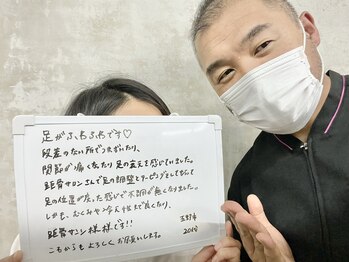 足がふわふわです♡
段差のない所でつまずいたり、
関節が痛くなったり足の衰えを感じていました。
距骨サロンさんで足の調整とテーピングとしてもらして
足の位置が戻った感じで不調が無くなりました。
しかも、むくみや冷え性まで良くなり、
距骨サロン様様です!!
これからもよろしくお願いします。
20代